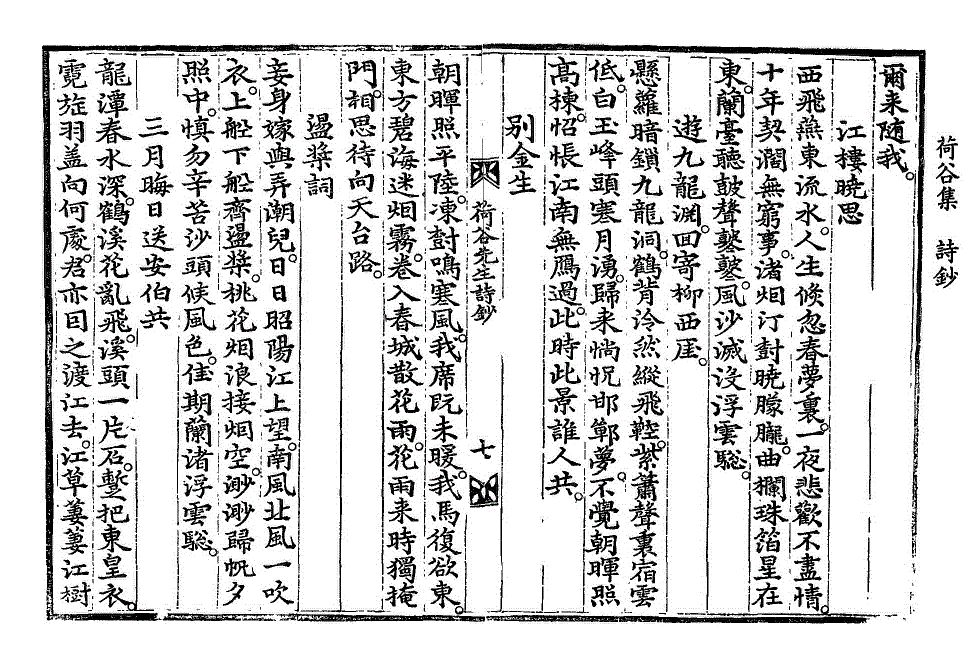 荷谷集 詩鈔
爾来随我。
江樓曉思
西飛燕東流水。人生倏忽春夢裏。一夜悲歡不盡情。
十年契濶無窮事。渚烟汀對曉朦朧。曲欄珠箔星在
東。蘭臺聽鼓聲鼕鼕。風沙滅没浮雲驄。
遊九龍淵。囬寄柳西厓。
懸蘿暗鎖九龍洞。鶴背泠然縱飛鞚。紫簫聲裏宿雲
低。白玉峰頭寒月湧。歸来惝怳邯鄲夢。不覺朝暉照
高棟。怊悵江南無鴈過。此時此景誰人共。
别金生
荷谷先生詩鈔 七
朝暉照平陸。凍對鳴寒風。我席既未暖。我馬復欲東。
東方碧海迷烟霧。卷入春城散花雨。花雨来時獨掩
門。相思待向天台路。
盪槳詞
妾身嫁與弄潮兒。日日昭陽江上望。南風北風一吹
衣。上船下船齊盪槳。桃花烟浪接烟空。渺渺歸帆夕
照中。慎勿辛苦沙頭候風色。佳期蘭渚浮雲驄。
三月晦日送安伯共
龍潭春水深。鶴溪花亂飛。溪頭一片石。蹔把東皇衣。
霓旌羽盖向何處。君亦囙之渡江去。江草萋萋江樹